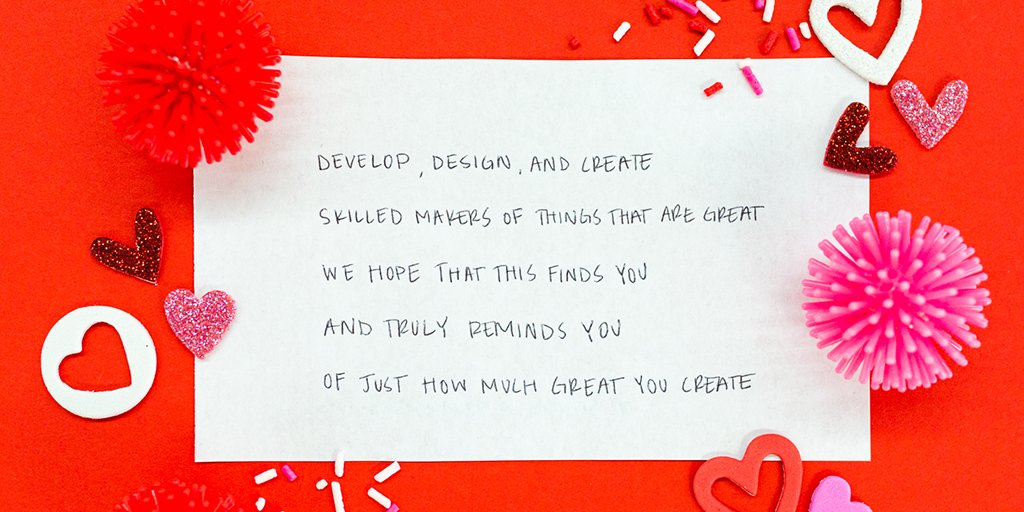 DEVELOP, DESIGN, AND CREATE
SKILLED MAKERS OF THINGS THAT ARE GREAT
WE HOPE THAT THIS FINDS YOU
AND TRULY REMINDS YOU
OF JUST HOW MUCH GREAT YOU CREATE